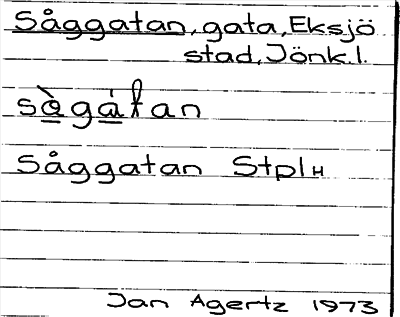 Såggatan, gata, Eksjö
stad, Jönk.l.
sò̲gá̲tan
Såggatan Stplн
Jan Agertz 1973